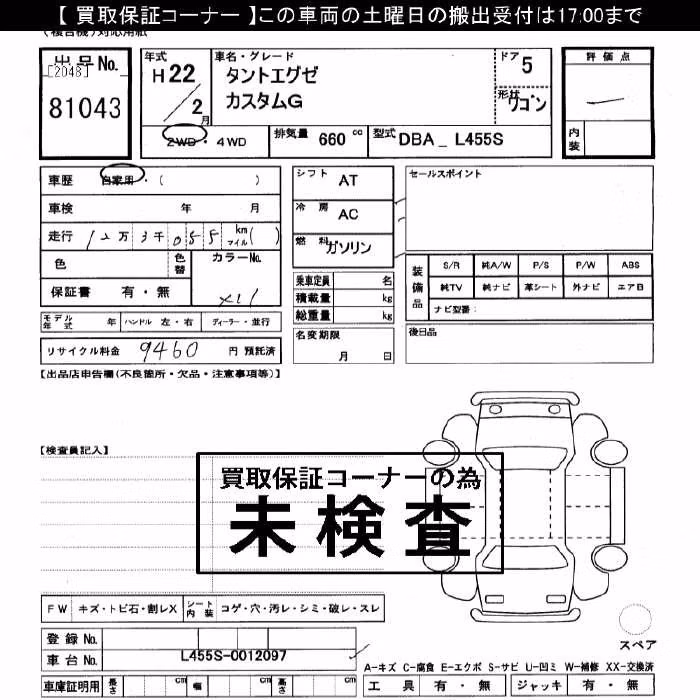 【 買取保証コーナー 】この車両の土曜日の搬出受付は17:00まで
(複合機)対応用紙
出品No.
[2048]
81043
年式
H22/2月
車名・グレード
タントエグゼ
カスタムG
ドア 5
形状 ワゴン
2WD・4WD
排気量 660 cc
型式 DBA_ L455S
評価点
内装
車歴 自家用・( )
車検 年 月
走行 12万3千055 km マイル( )
色 色替 カラーNo.
X11
保証書 有・無
モデル年式 年 ハンドル 左・右 ディーラー・並行
リサイクル料金 9460 円 預託済
シフト AT
冷房 AC
燃料 ガソリン
乗車定員 名
積載量 kg
総重量 kg
名変期限
月 日
セールスポイント
装備品
S/R 純A/W P/S P/W ABS
純TV 純ナビ 革シート 外ナビ エアB
ナビ型番:
後日品
【出品店申告欄(不良箇所・欠品・注意事項等)】
【検査員記入】
買取保証コーナーの為
未検査
FW キズ・トビ石・割レX シート内装 コゲ・穴・汚レ・シミ・破レ・スレ
登録No.
車台No. L455S-0012097
車庫証明用 長さ cm 幅 cm 高さ cm
スペア
A-キズ C-腐食 E-エクボ S-サビ U-凹ミ W-補修 XX-交換済
工具 有・無 ジャッキ 有・無